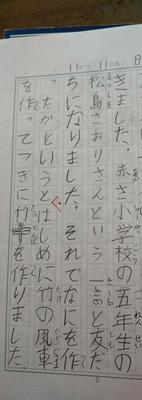 きました。赤さ小学校の五年生の
松島さおりさんという と友だ
ちになりました。それでなにを作
ったかというとはじめに竹の風車
を作ってつぎに竹 を作りました。